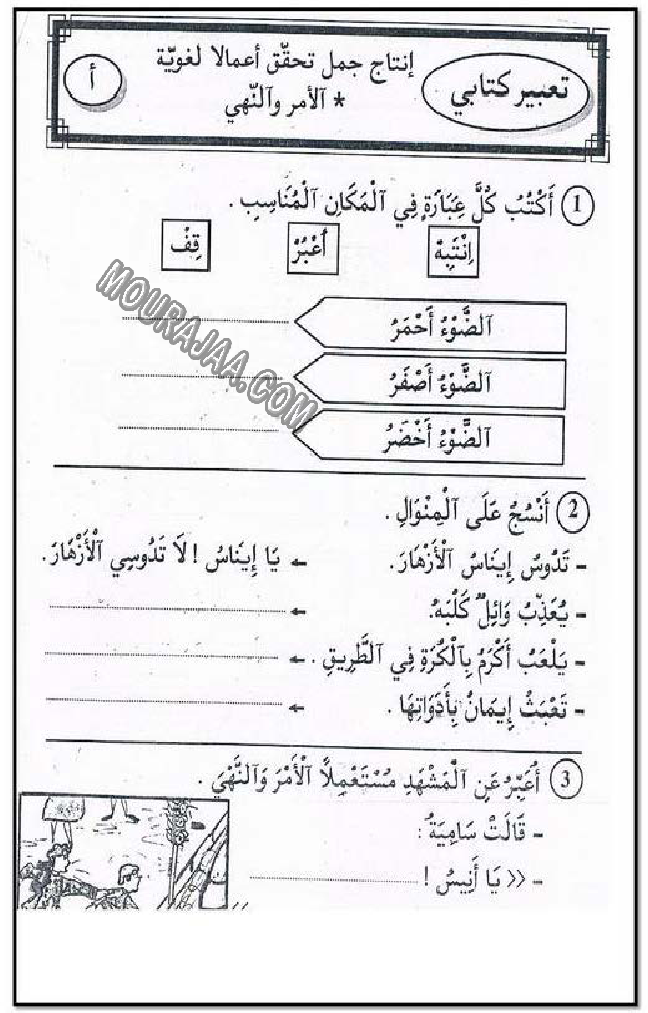 تعبير كتابي
إنتاج جمل تحقّق أعمالا لغويّة
* ٱلأمر وٱلنّهي
أ
1 أَكْتُبُ كُلَّ عِبَارَةٍ فِي ٱلْمَكَانِ ٱلْمُنَاسِبِ .
اِنْتَبِهْ أُعْبُرْ قِفْ
ٱلضَّوْءُ أَحْمَرُ
ٱلضَّوْءُ أَصْفَرُ
ٱلضَّوْءُ أَخْضَرُ
MOURAJAA.COM
2 أَنْسُجُ عَلَى ٱلْمِنْوَالِ .
- تَدُوسُ إِينَاسُ ٱلْأَزْهَارَ. ← يَا إِينَاسُ ! لَا تَدُوسِي ٱلْأَزْهَارَ.
- يُعَذِّبُ وَائِلٌ كَلْبَهُ. ← ..............................
- يَلْعَبُ أَكْرَمُ بِٱلْكُرَةِ فِي ٱلطَّرِيقِ . ← ..............................
- تَعْبَثُ إِيمَانُ بِأَدَوَاتِهَا . ← ..............................
3 أُعَبِّرُ عَنِ ٱلْمَشْهَدِ مُسْتَعْمِلًا ٱلْأَمْرَ وَٱلنَّهْيَ .
- قَالَتْ سَامِيَةُ :
- << يَا أَنِيسُ ! ..............................